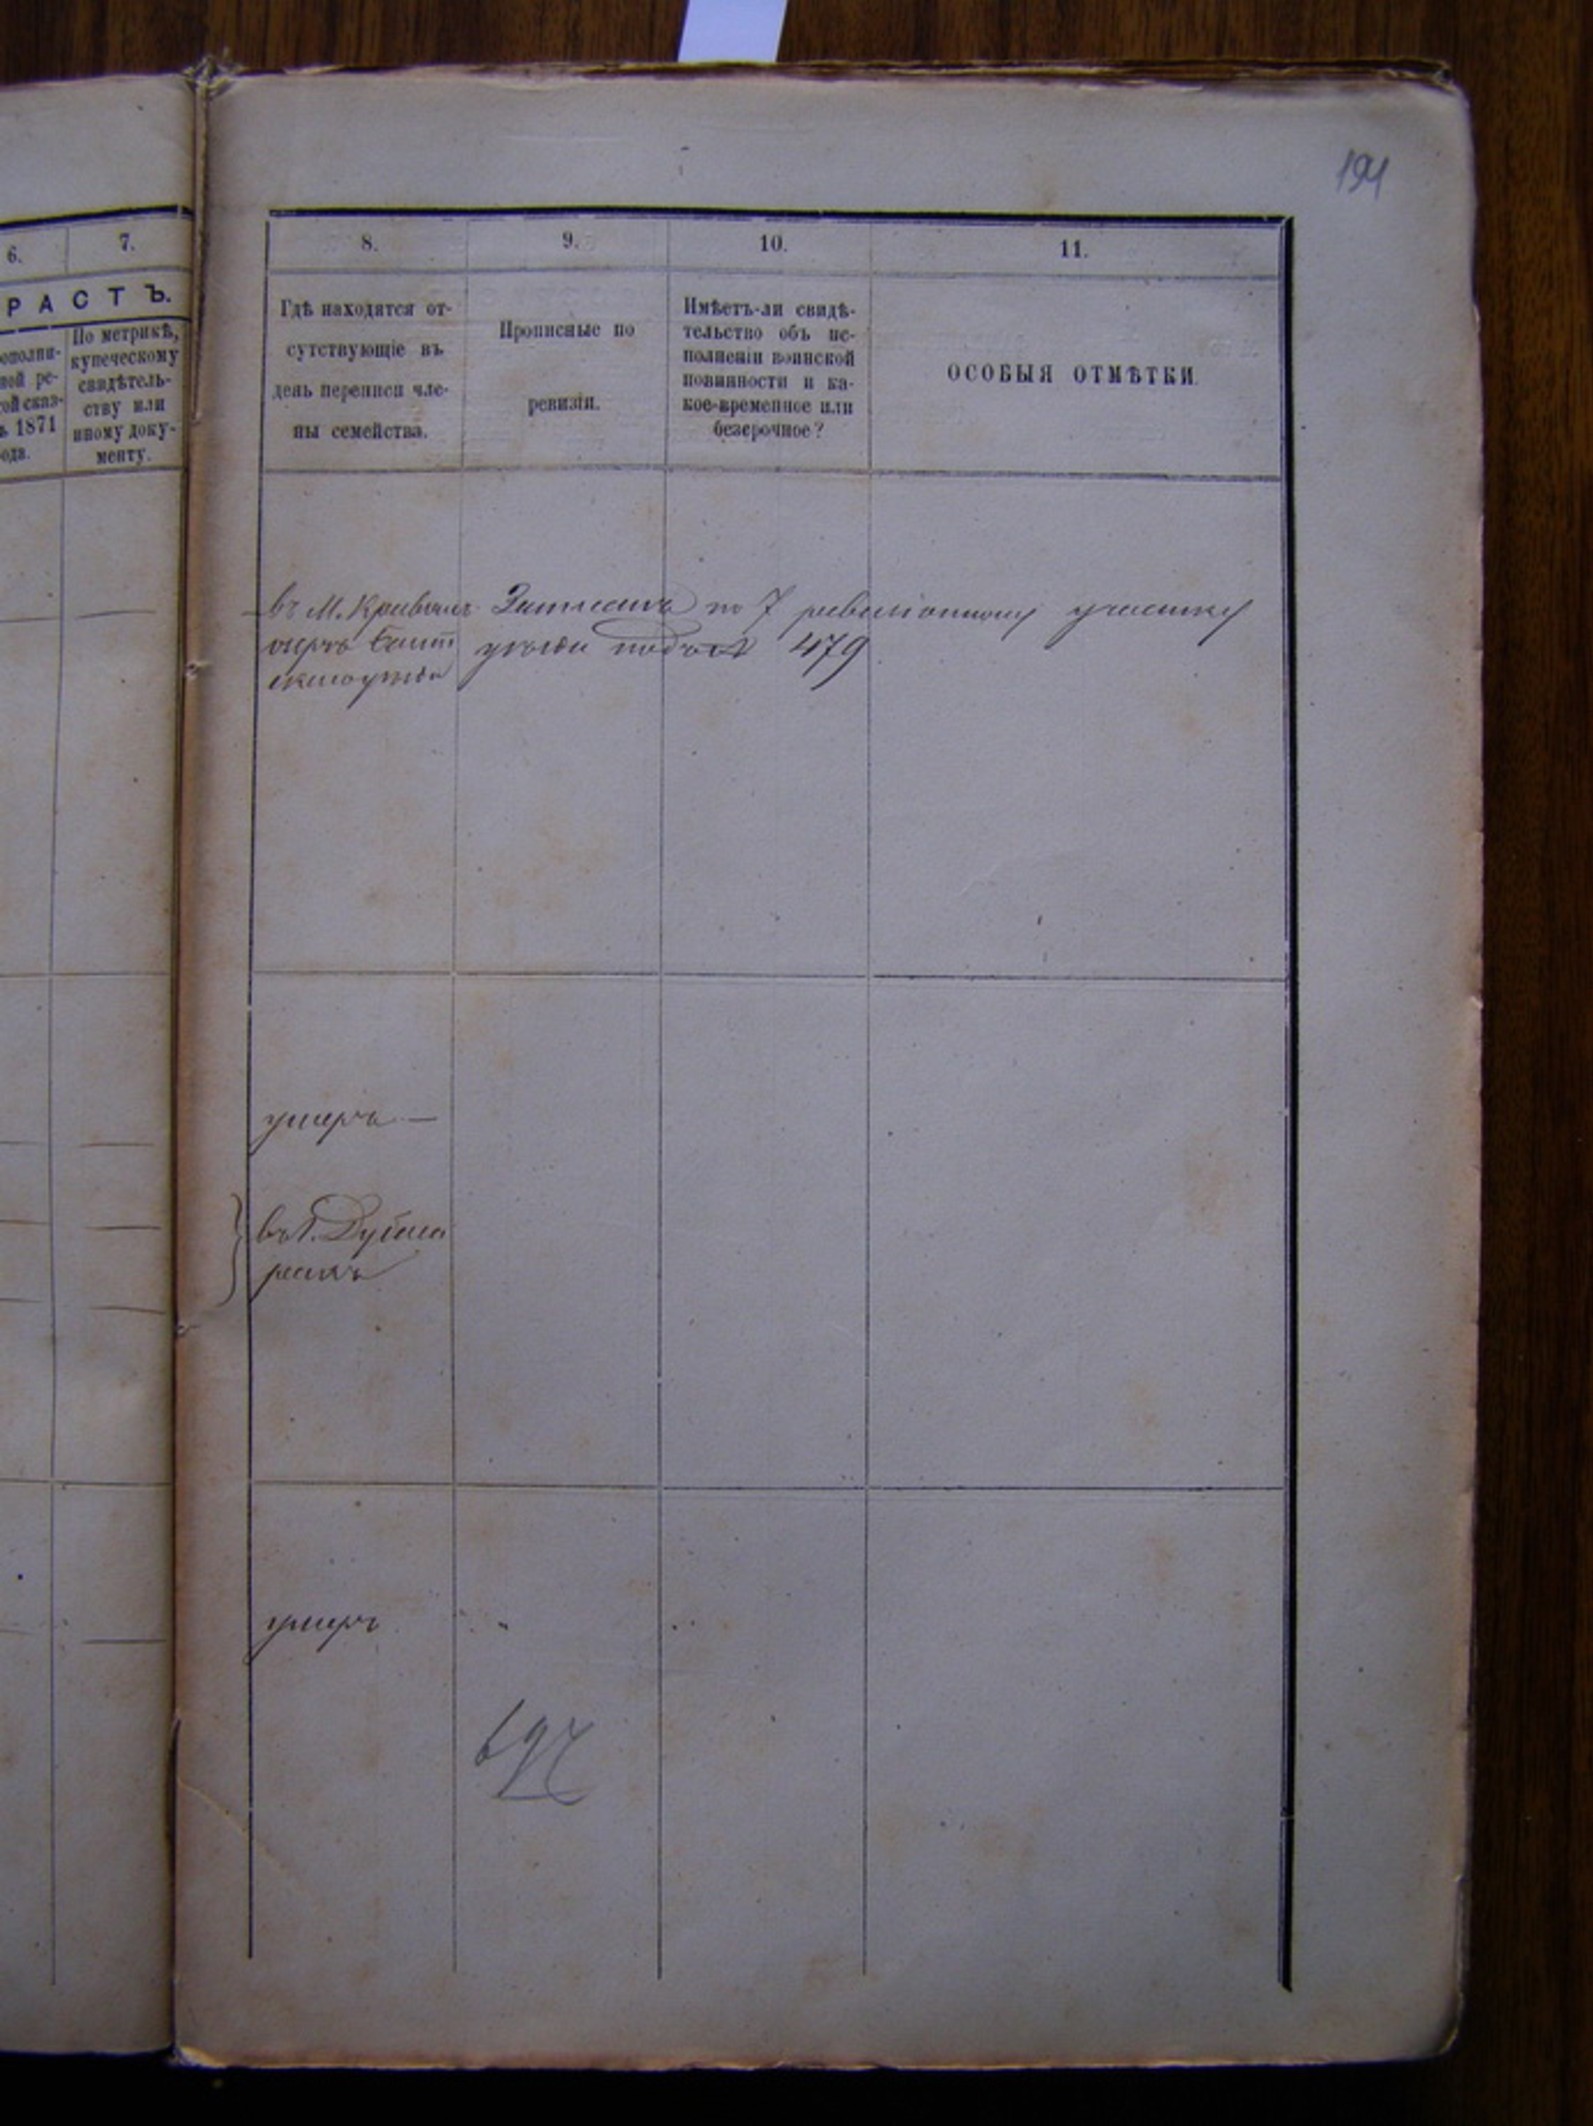 194
6.
7.
РАСТЪ.
ополни-
ной ре-
ой сказ-
ъ 1871
ода.
По метрикѣ,
купеческому
свидѣтель-
ству или
иному доку-
менту.
8.
9.
10.
11.
Гдѣ находятся от-
сутствующіе въ
день переписи чле-
ны семейства.
Прописные по
ревизіи.
Имѣетъ-ли свидѣ-
тельство объ ис-
полненіи воинской
повинности и ка-
кое-временное или
безсрочное?
ОСОБЫЯ ОТМѢТКИ.
въ М. Кривыхъ Записанъ по 7 ревизіонному участку
озерѣ уѣзда подъ № 479
умеръ —
въ г. Дубоса
рахъ
умеръ